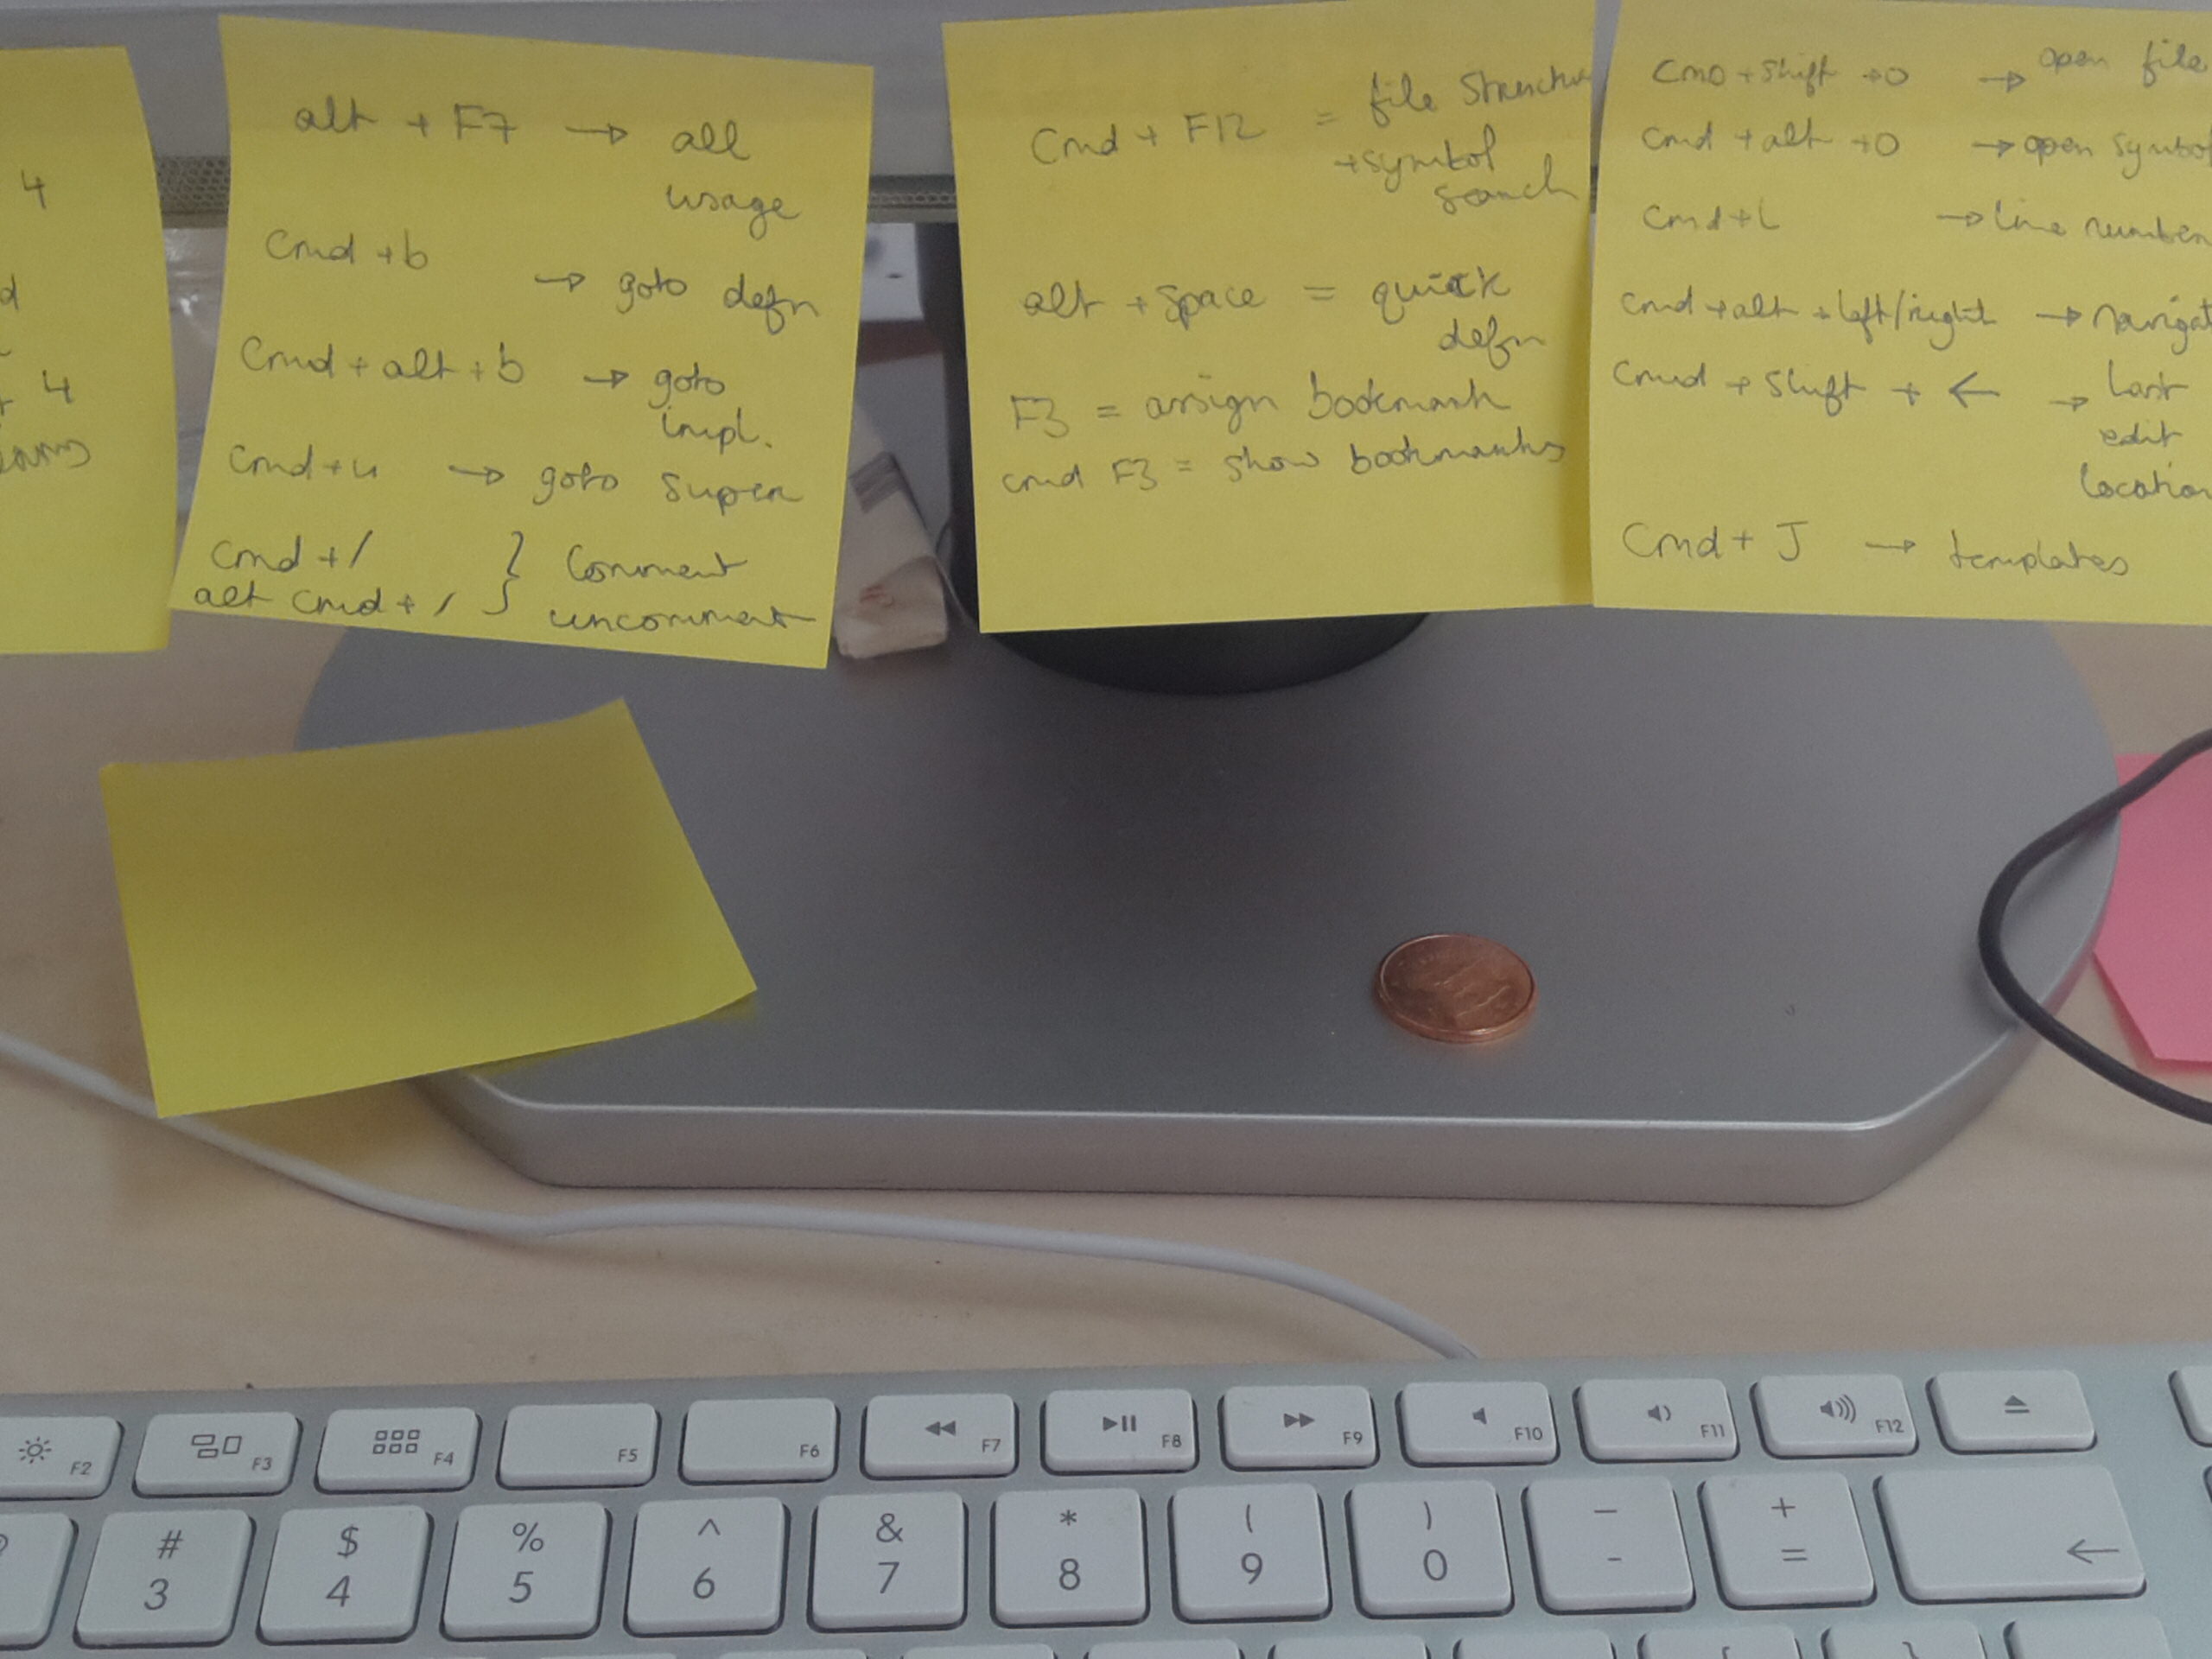 4
4
alt + F7 → all
usage
cmd + b → goto defn
cmd + alt + b → goto
impl.
cmd + u → goto super
cmd + / } comment
alt cmd + / } uncomment
cmd + F12 = file structur
+ symbol
search
alt + space = quick
defn
F3 = assign bookmark
cmd F3 = show bookmarks
cmd + shift + O → open file
cmd + alt + O → open symbol
cmd + L → line number
cmd + alt + left/right → navigat
cmd + shift + ← → last
edit
location
cmd + J → templates
F2 F3 F4 F5 F6 F7 F8 F9 F10 F11 F12
# $ % ^ & * ( ) — +
3 4 5 6 7 8 9 0 - = ←
[ }